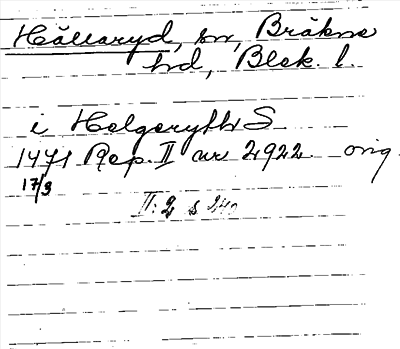 Hällaryd, sn, Bräkne
hd, Blek. l.
i Helgeryth S
1471 Rep. II nr 2922 orig.
17/3
II: 2 s 240